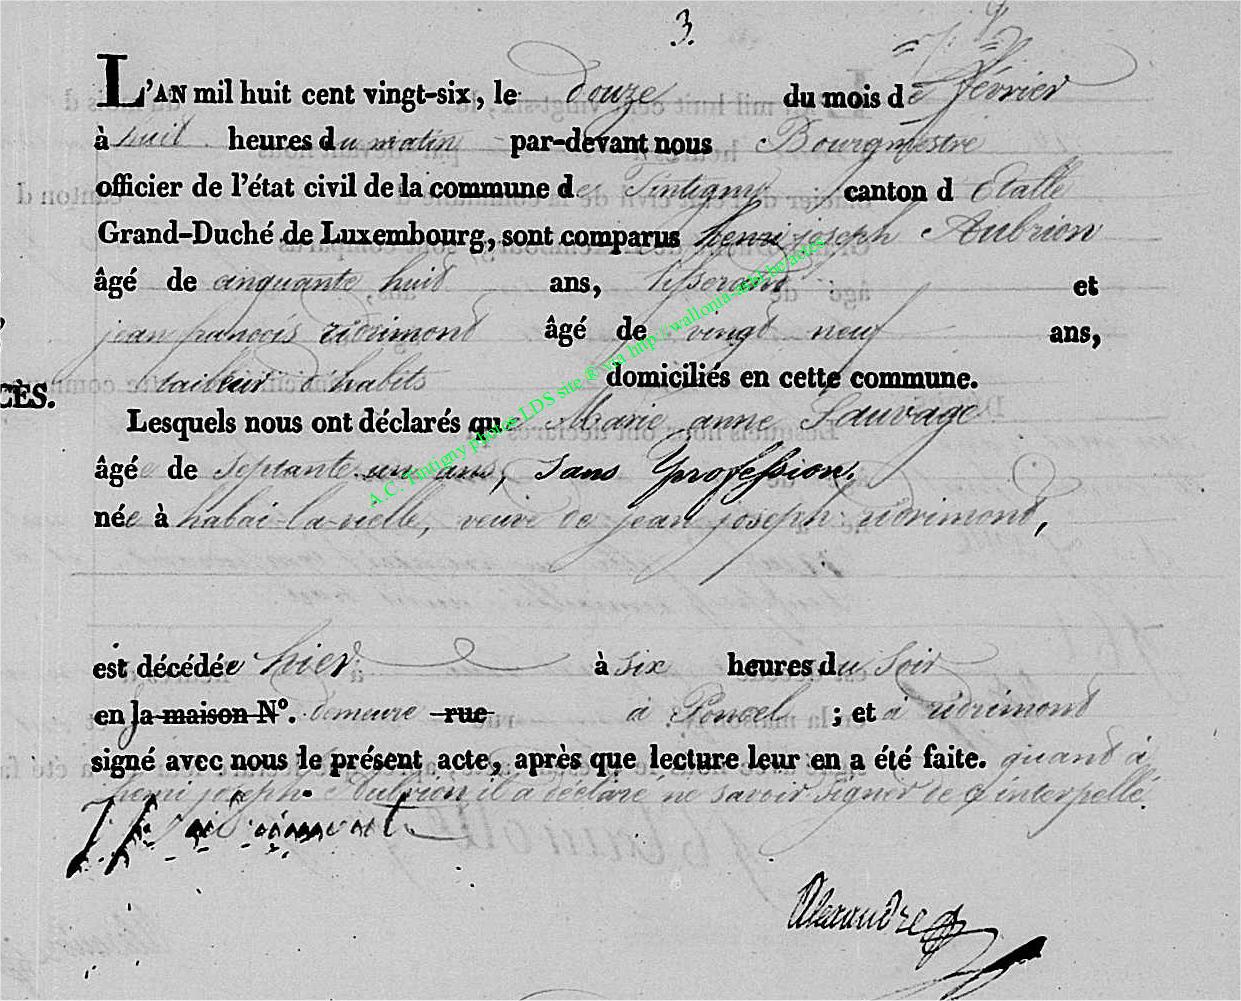 3.
L'AN mil huit cent vingt-six, le douze du mois de février
à huit heures du matin par-devant nous Bourgmestre
officier de l'état civil de la commune de Tintigny canton d Etalle
Grand-Duché de Luxembourg, sont comparus henri joseph Aubrion
âgé de cinquante huit ans, tisserand et
jean francois ridrimond âgé de vingt neuf ans,
tailleur d'habits domiciliés en cette commune.
CÈS.
Lesquels nous ont déclarés que Marie anne Sauvage
âgée de septante un ans, sans profession,
née à habai-la-vielle, veuve de jean joseph ridrimond,
est décédée hier à six heures du soir
en la maison N°. demeure rue à Poncel ; et à ridrimond
signé avec nous le présent acte, après que lecture leur en a été faite. quand à
henri joseph Aubrion il a déclaré ne savoir signer de q interpellé.
Alexandre
A.C. Tintigny photos LDS site ® via http://wallonia-asbl.be/actes